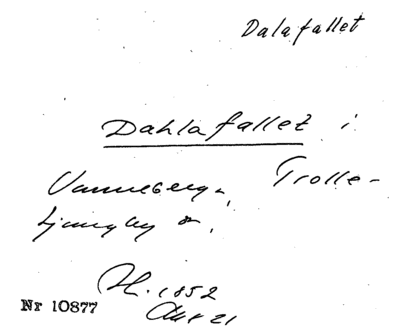 Dalafallet
Dahlafallet i
Vanneberga, Trolle-
ljungby sn,
H. 1852
Akt 21
Nr 10877